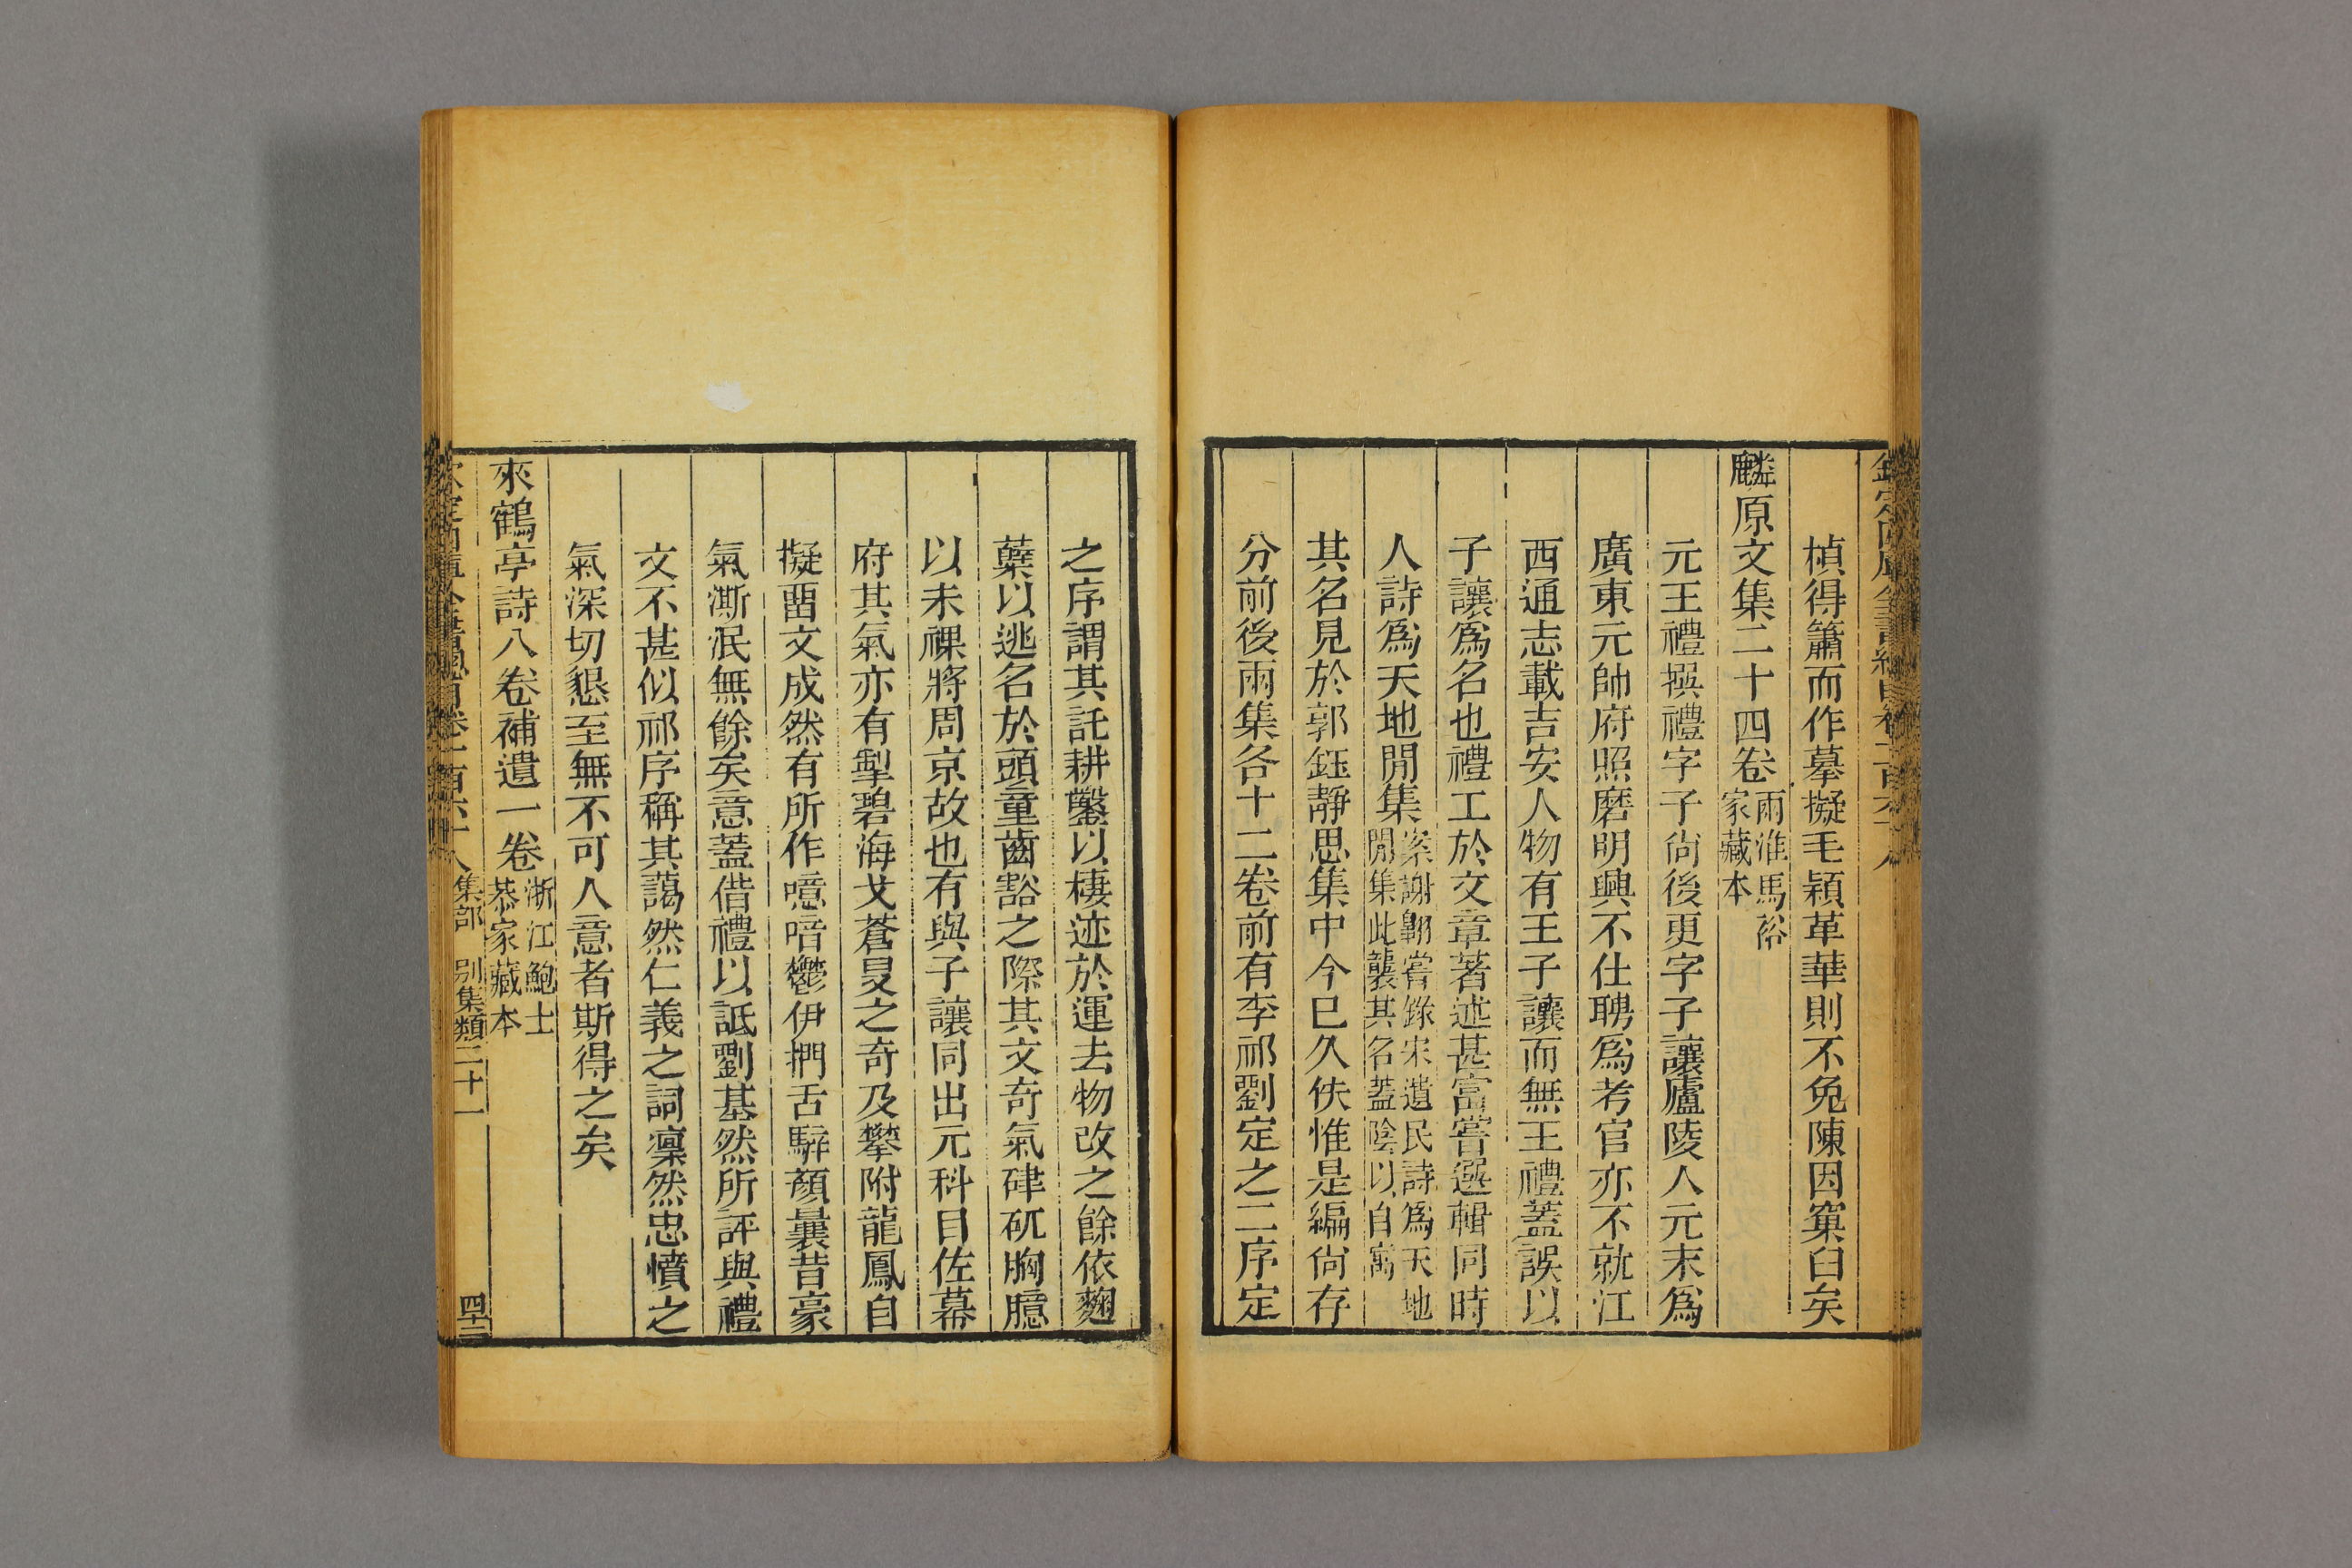 楨得簫而作摹擬毛穎革華則不免陳因窠臼矣
麟原文集二十四卷
兩淮馬裕
家藏本
元王禮撰禮字子尙後更字子讓廬陵人元末爲
廣東元帥府照磨明興不仕聘爲考官亦不就江
西通志載吉安人物有王子讓而無王禮蓋誤以
子讓爲名也禮工於文章著述甚富嘗選輯同時
人詩爲天地閒集
案謝翺嘗錄宋遺民詩爲天地
閒集此襲其名蓋陰以自寓
其名見於郭鈺靜思集中今已久佚惟是編尙存
分前後兩集各十二卷前有李祁劉定之二序定
之序謂其託耕鑿以棲迹於運去物改之餘依麴
蘖以逃名於頭童齒豁之際其文奇氣硉矹胸臆
以未祼將周京故也有與子讓同出元科目佐幕
府其氣亦有掣碧海弋蒼旻之奇及攀附龍鳳自
擬畱文成然有所作噫喑鬱伊捫舌騂顏曩昔豪
氣澌泯無餘矣意蓋借禮以詆劉基然所評與禮
文不甚似祁序稱其藹然仁義之詞凜然忠憤之
氣深切懇至無不可人意者斯得之矣
來鶴亭詩八卷補遺一卷
浙江鮑士
恭家藏本
集部 別集類二十一
四十三